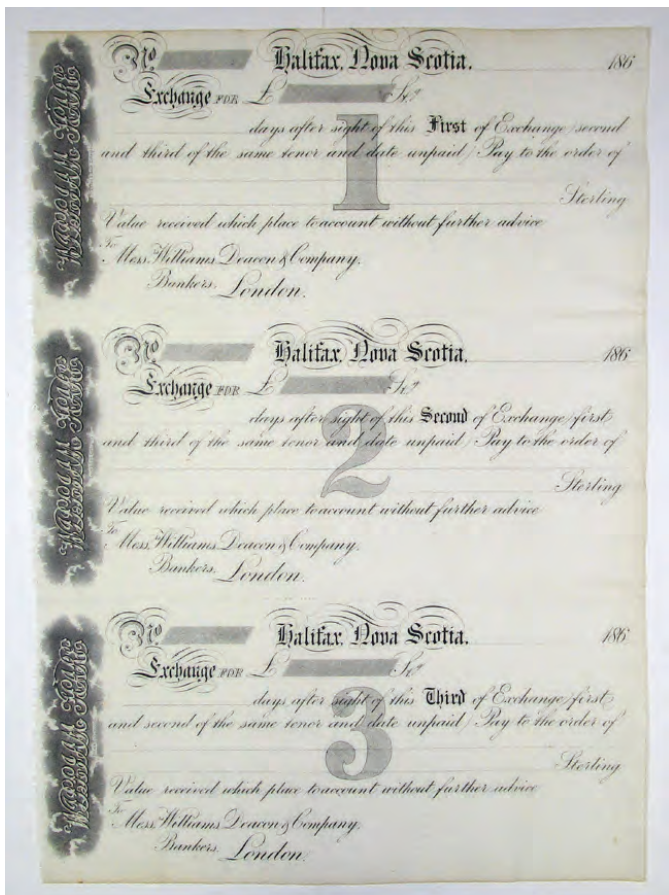 No Halifax, Nova Scotia, 186
Exchange FOR £ Stg
days after sight of this First of Exchange (second
and third of the same tenor and date unpaid) Pay to the order of
1
Sterling
Value received which place to account without further advice
To Mess. Williams Deacon & Company,
Bankers, London.
No Halifax, Nova Scotia, 186
Exchange FOR £ Stg
days after sight of this Second of Exchange (first
and third of the same tenor and date unpaid) Pay to the order of
2
Sterling
Value received which place to account without further advice
To Mess. Williams Deacon & Company,
Bankers, London.
No Halifax, Nova Scotia, 186
Exchange FOR £ Stg
days after sight of this Third of Exchange (first
and second of the same tenor and date unpaid) Pay to the order of
3
Sterling
Value received which place to account without further advice
To Mess. Williams Deacon & Company,
Bankers, London.